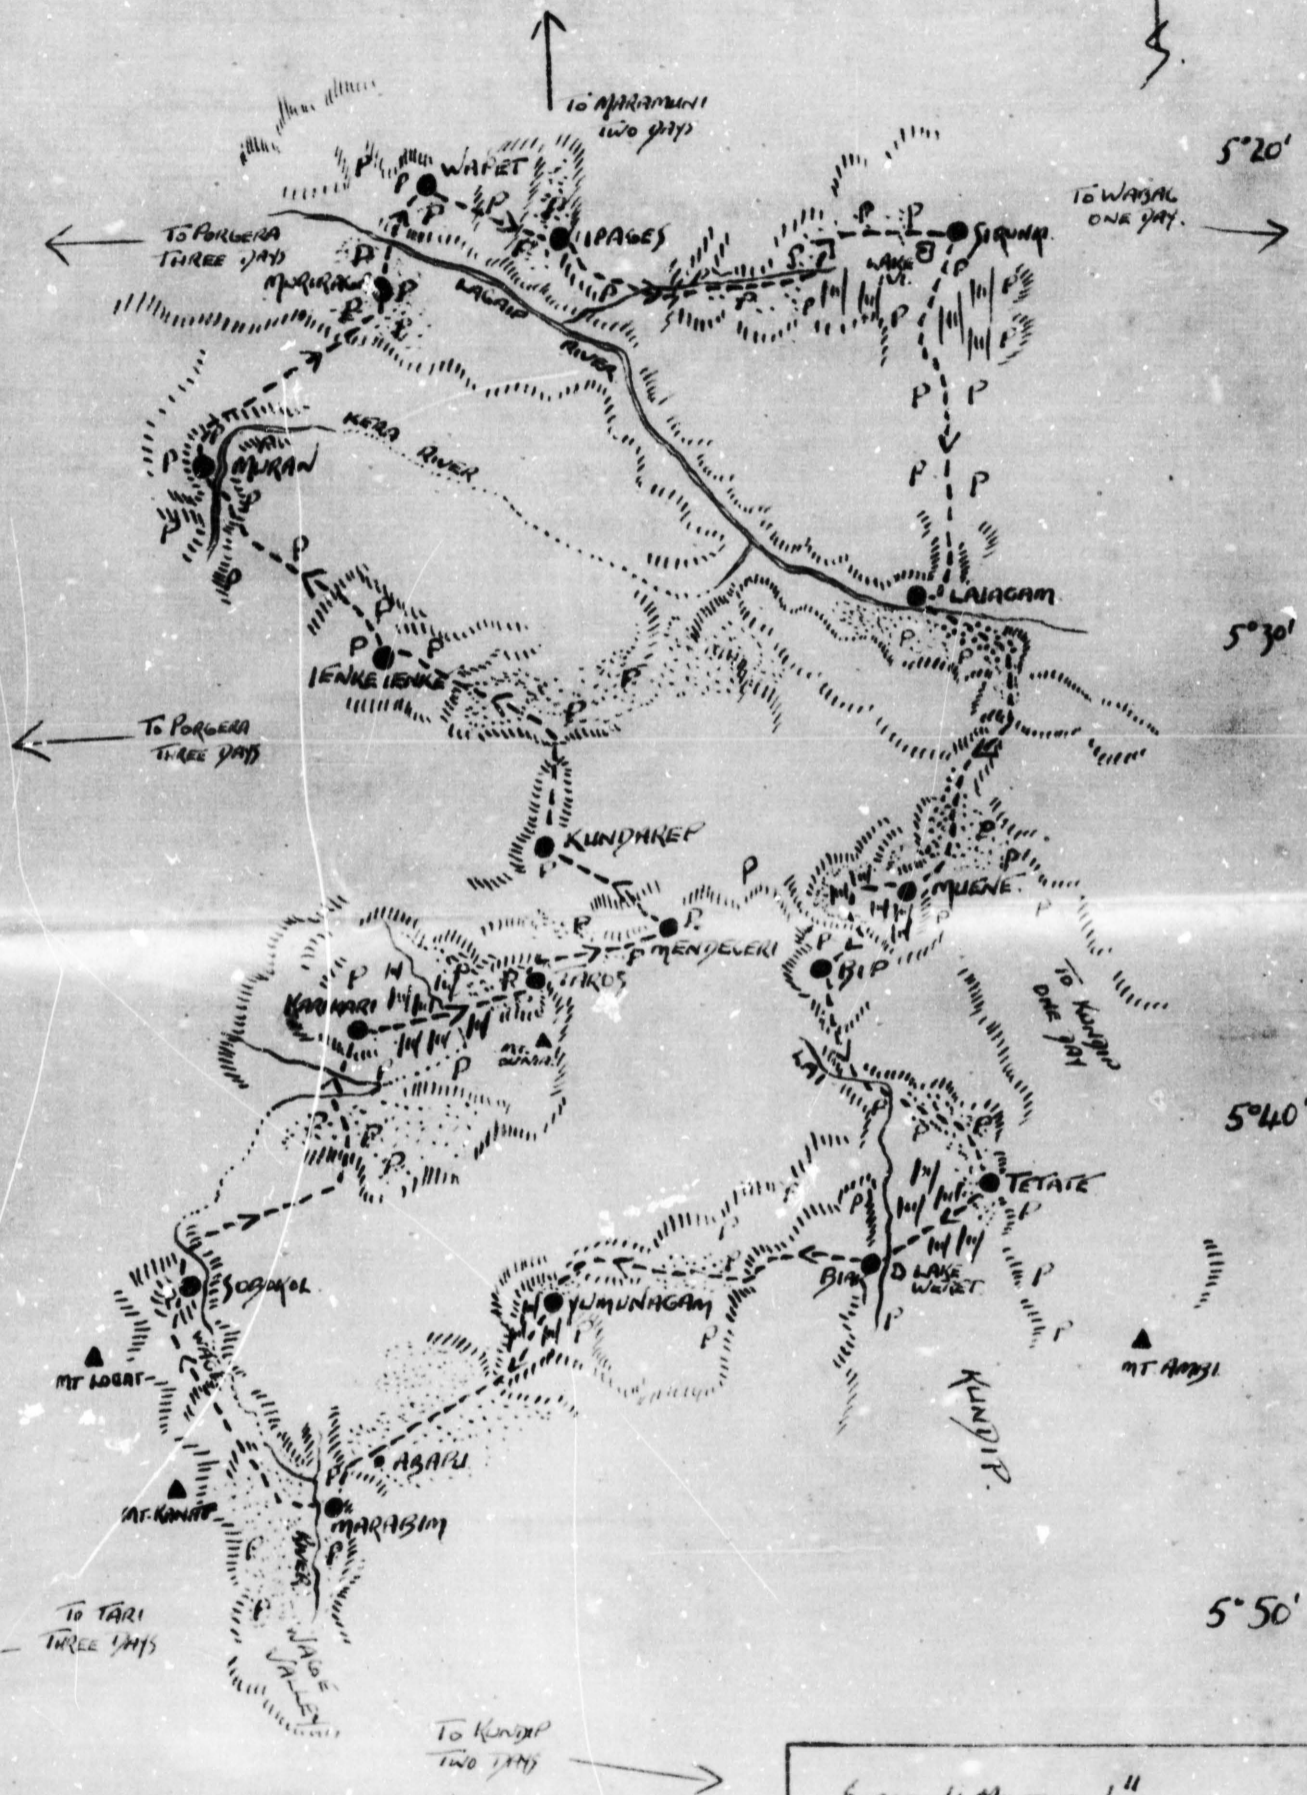 S.
TO MARAMUNI
TWO DAYS
5°20'
WAPET
TO WABAG
ONE DAY.
TO PORGERA
THREE DAYS
IPAGES
SIRUNKI
LAKE
LAGAIP
RIVER
KERA RIVER
MURAN
LAIAGAM
5°30'
IENKEIENKE
TO PORGERA
THREE DAYS
KUNDAREP
MUENE
MENDEGERI
BIP
TAROS
KARIKARI
MT.
TO KUNDIP
ONE DAY
LAI
5°40'
TETATE
SOBOKOL
BIAK
LAKE
YUMUNAGAM
WAGE
MT LOGAT
MT AMBI
KUNDIP
ABAPU
MT. KANAT
MARABIM
RIVER
5°50'
TO TARI
THREE DAYS
WAGE
VALLEY
TO KUNDIP
TWO DAYS